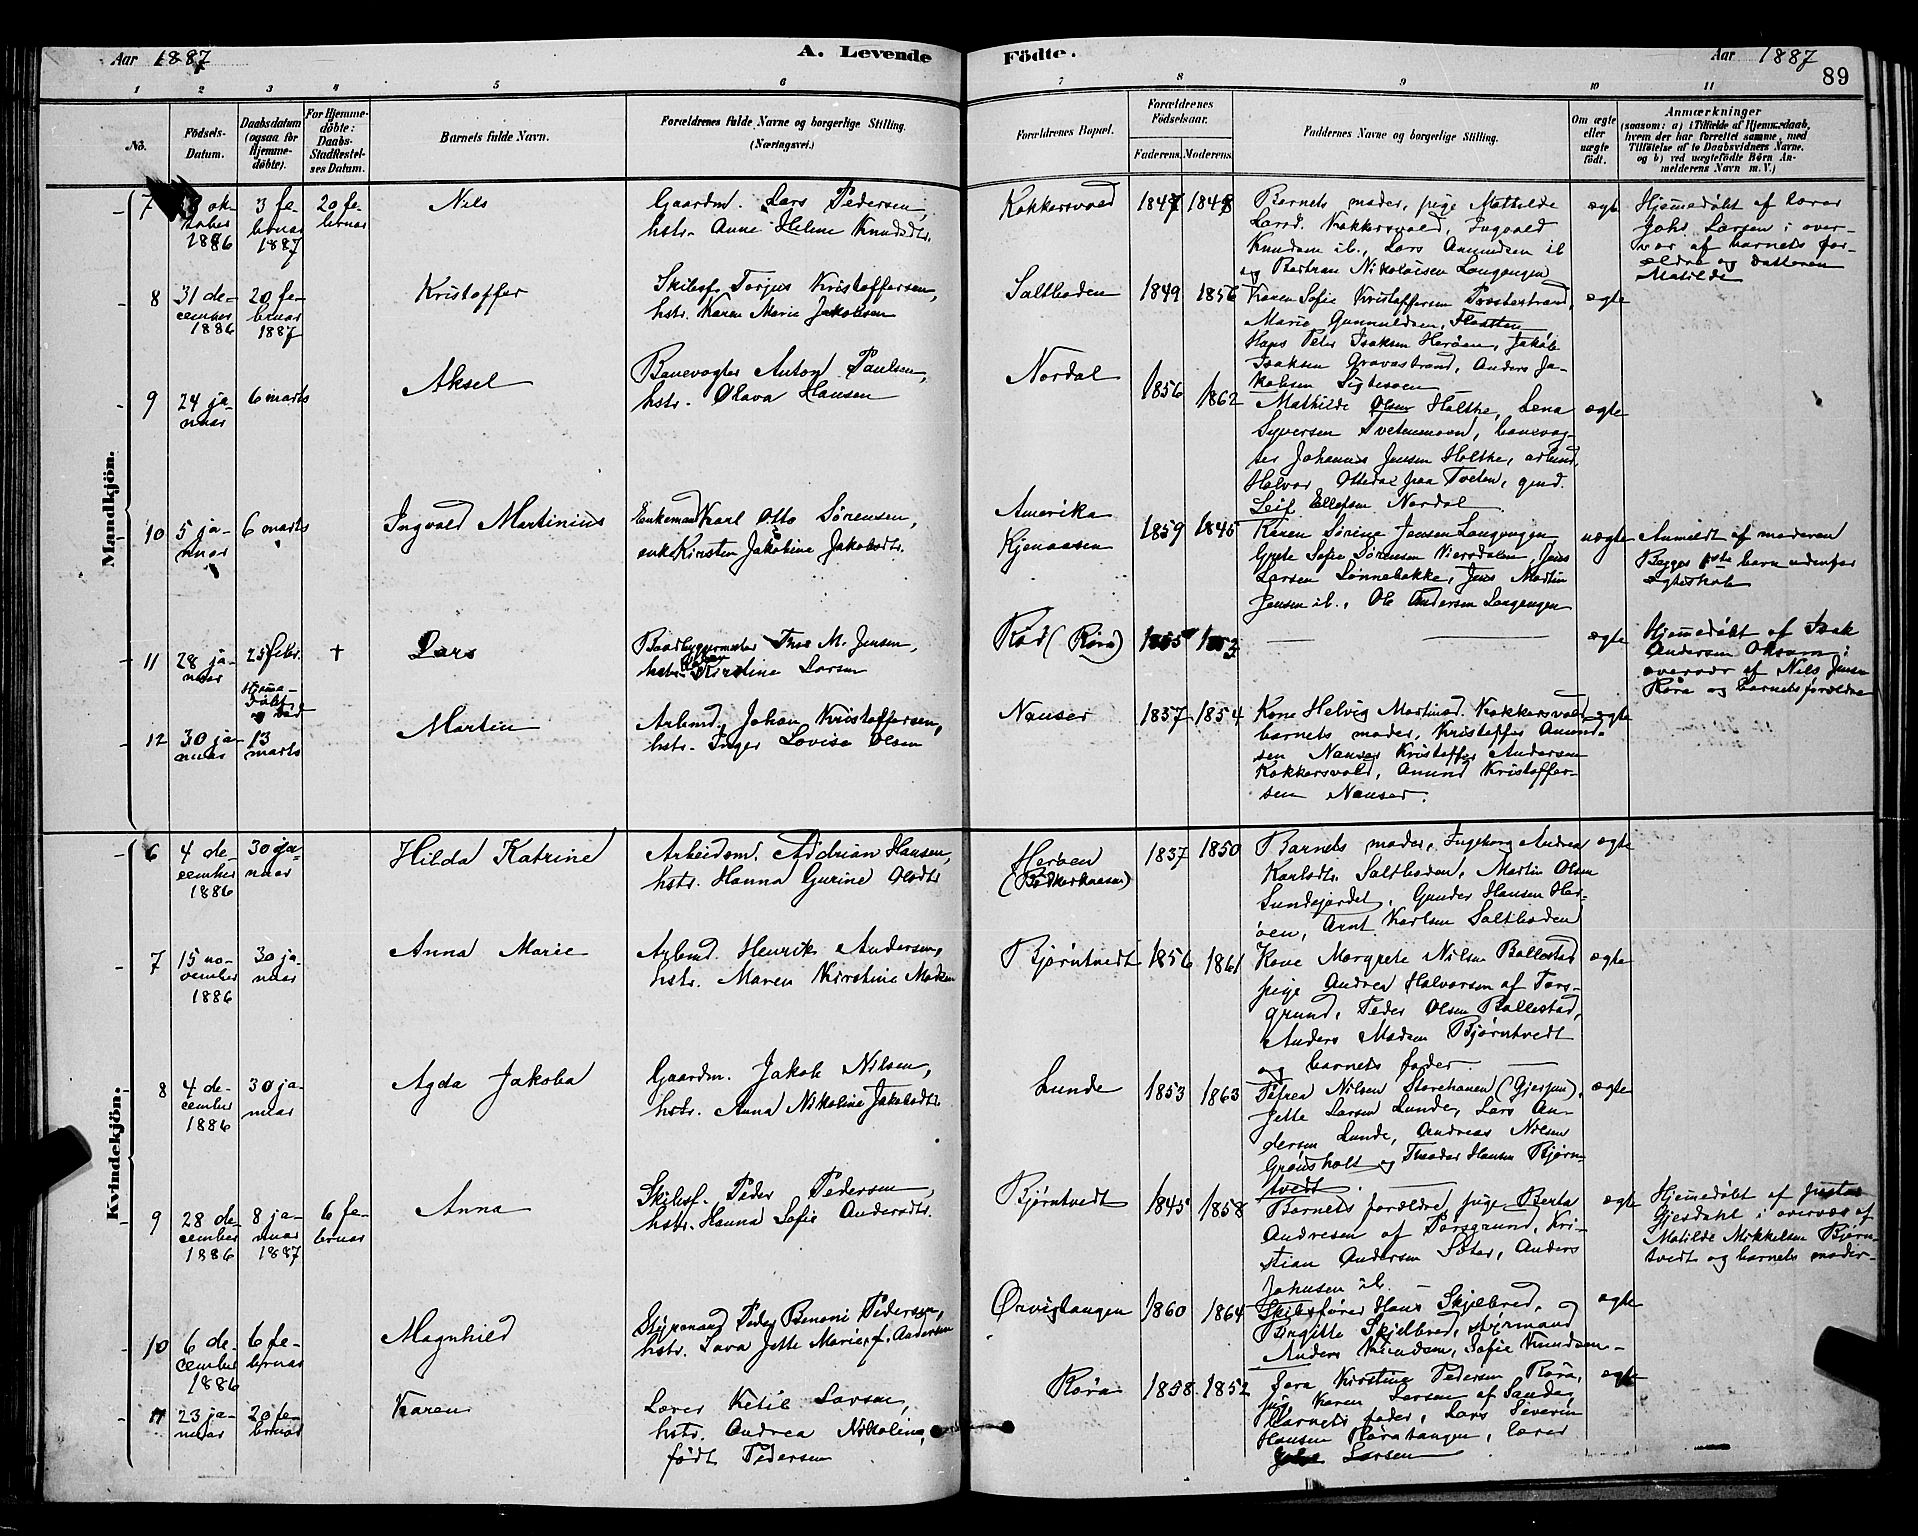 Aar 1887
A. Levende
Födte.
Aar 1887
89
1 2 3 4 5 6 7 8 9 10 11
No.
Födsels-
Datum.
Daabsdatum
(ogsaa for
Hjemme-
döbte).
For Hjemme-
döbte:
Daabs-
Stadfæstel-
ses Datum.
Barnets fulde Navn.
Forældrenes fulde Navne og borgerlige Stilling.
(Næringsvei.)
Forældrenes Bopæl.
Forældrenes
Födselsaar.
Faderens. Moderens.
Faddernes Navne og borgerlige Stilling.
Om ægte
eller
uægte
født.
Anmærkninger
(saasom: a) i Tilfælde af Hjemmedaab,
hvem der har forrettet samme, med
Tilföielse af to Daabsvidners Navne.
og b) ved uægtefödte Börn An-
melderens Navn m. V.)
Mandkjön.
7
ok-
tober
1886
3 fe-
bruar
1887
20 fe-
bruar
Nils
Gaardm. Lars Pedersen,
hstr. Anne Helene Knudsdtr.
Kokkersvold
1847 1848
Barnets moder, pige Mathilde
Larsd. Kokkersvold, Ingvald
Knudsen ib., Lars Amundsen ib
og Bertran Nikolaisen Langangen
ægte
Hjemmedøbt af lærer
Johs. Larsen i over-
vær af barnets for-
ældre og datteren
Matilde
8
31 de-
cember
1886
20 fe-
bruar
1887
Kristoffer
Skibsf. Torjus Kristoffersen,
hstr. Karen Marie Jakobsen
Saltboden
1849 1856
Karen Sofie Kristoffersen
Marie Gunnuldsen,
Hans Peter Isaksen Herøen, Jakob
Isaksen Gravastrand, Anders Ja-
kobsen
ægte
9
24 ja-
nuar
6 marts
Aksel
Banevogter Anton Paulsen,
hstr. Olava Hansen
Nordal
1856 1862
Mathilde Olsen Holtke, Lena
Syversen Tvetenmoen, banevog-
ter Johannes Jensen Holtke, arbmd.
Halvor Ottedal paa Tveten, gmd.
Leif Ellefsen Nordal
ægte
10
5 ja-
nuar
6 marts
Ingvald Martinius
Enkemand Karl Otto Sørensen,
enke Kirsten Jakobine Jakobsdtr.
Amerika
Kjenaasen
1859 1845
Karen Sørine Jensen Langangen
Grete Sofie Sørensen Viersdalen, Jens
Larsen Lønnebakke, Jens Martin
Jensen ib., Ole Andersen Langangen
uægte
Anmeldt af moderen
Begges 1ste barn udenfor
ægteskab
11
28 ja-
nuar
25 febr.
Hjemme-
døbt
og død
+
Lars
Baadbyggermester Thos M. Jensen,
hstr. Karen Kirstine Larsen
Rød (Røra)
1855 1853
ægte
Hjemmedøbt af Isak
Andersen Oksum i
overvær af Nils Jensen
Røra og barnets forældre
12
30 ja-
nuar
13
marts
Martin
Arbmd. Johan Kristoffersen,
hstr. Inger Lovise Olsen
Nauser
1857 1854
Kone Helvig Martinsd. Kokkersvold,
barnets moder, Kristoffer Amund-
sen Nauser Kristoffer Andersen
Kokkersvold, Amund Kristoffer-
sen Nauser.
ægte
Kvindekjön.
6
4 de-
cember
1886
30 ja-
nuar
Hilda Katrine
Arbeidsm. Addrian Hansen,
hstr. Hanna Gurine Olsdtr
Herøen
1837 1850
Barnets moder, Ingeborg Andrea
Karlsdtr. Saltboden, Martin Olsen
Sundsjordet, Gunder Hansen Her-
øen, Arnt Karlsen Saltboden
ægte
7
15 no-
vember
1886
30 ja-
nuar
Anna Marie
Arbmd. Henrik Andersen,
hstr. Maren Kirstine Madsen
Bjørntvedt
1856 1861
Kone Margrete Nilsen Ballestad
pige Andrea Halvorsen af Pors-
grund, Peder Olsen Ballestad,
Anders Madsen Bjørntvedt
og barnets fader
ægte
8
4 de-
cember
1886
30 ja-
nuar
Agda Jakoba
Gaardm. Jakob Nilsen,
hstr. Anna Nikoline Jakobsdtr.
Lunde
1853 1863
Petrea Nilsen (Gjerpen),
Jette Larsen Lunde, Lars An-
dersen Lunde, Andreas Nilsen
Grønsholt og Theodor Hansen Bjørn-
tvedt
ægte
9
28 de-
cember
1886
8 ja-
nuar
1887
6 fe-
bruar
Anna
Skibsf. Peder Pedersen,
hstr. Hanna Sofie Andersdtr.
Bjørntvedt
1845 1858
Barnets forældre, pige Berta
Andresen af Porsgrund, Kri-
stian Andersen Sæter, Anders
Johnsen ib.
ægte
Hjemmedøbt af Justus
Gjesdahl i overvær af
Matilde Mikkelsen Bjørn-
tvedt og barnets moder
10
6 de-
cember
1886
6 fe-
bruar
Magnhild
Styrmand Peder Benoni Pedersen,
hstr. Tara Jette Marie f. Andersen
Ørvigtangen
1860 1864
Skibsfører Hans Skjelbred,
Birgitte Skjelbred, styrmand
Anders Knudsen, Sofie Knudsen
ægte
11
23 ja-
nuar
20 fe-
bruar
Karen
Lærer Ketil Larsen,
hstr. Andrea Nikoline,
født Pedersen
Røra
1858 1852
Sara Kirstine Pedersen Røra,
pige Karen Larsen af Sande,
barnets fader, Lars Severin
Hansen Røratangen, lærer
Johs. Larsen
ægte